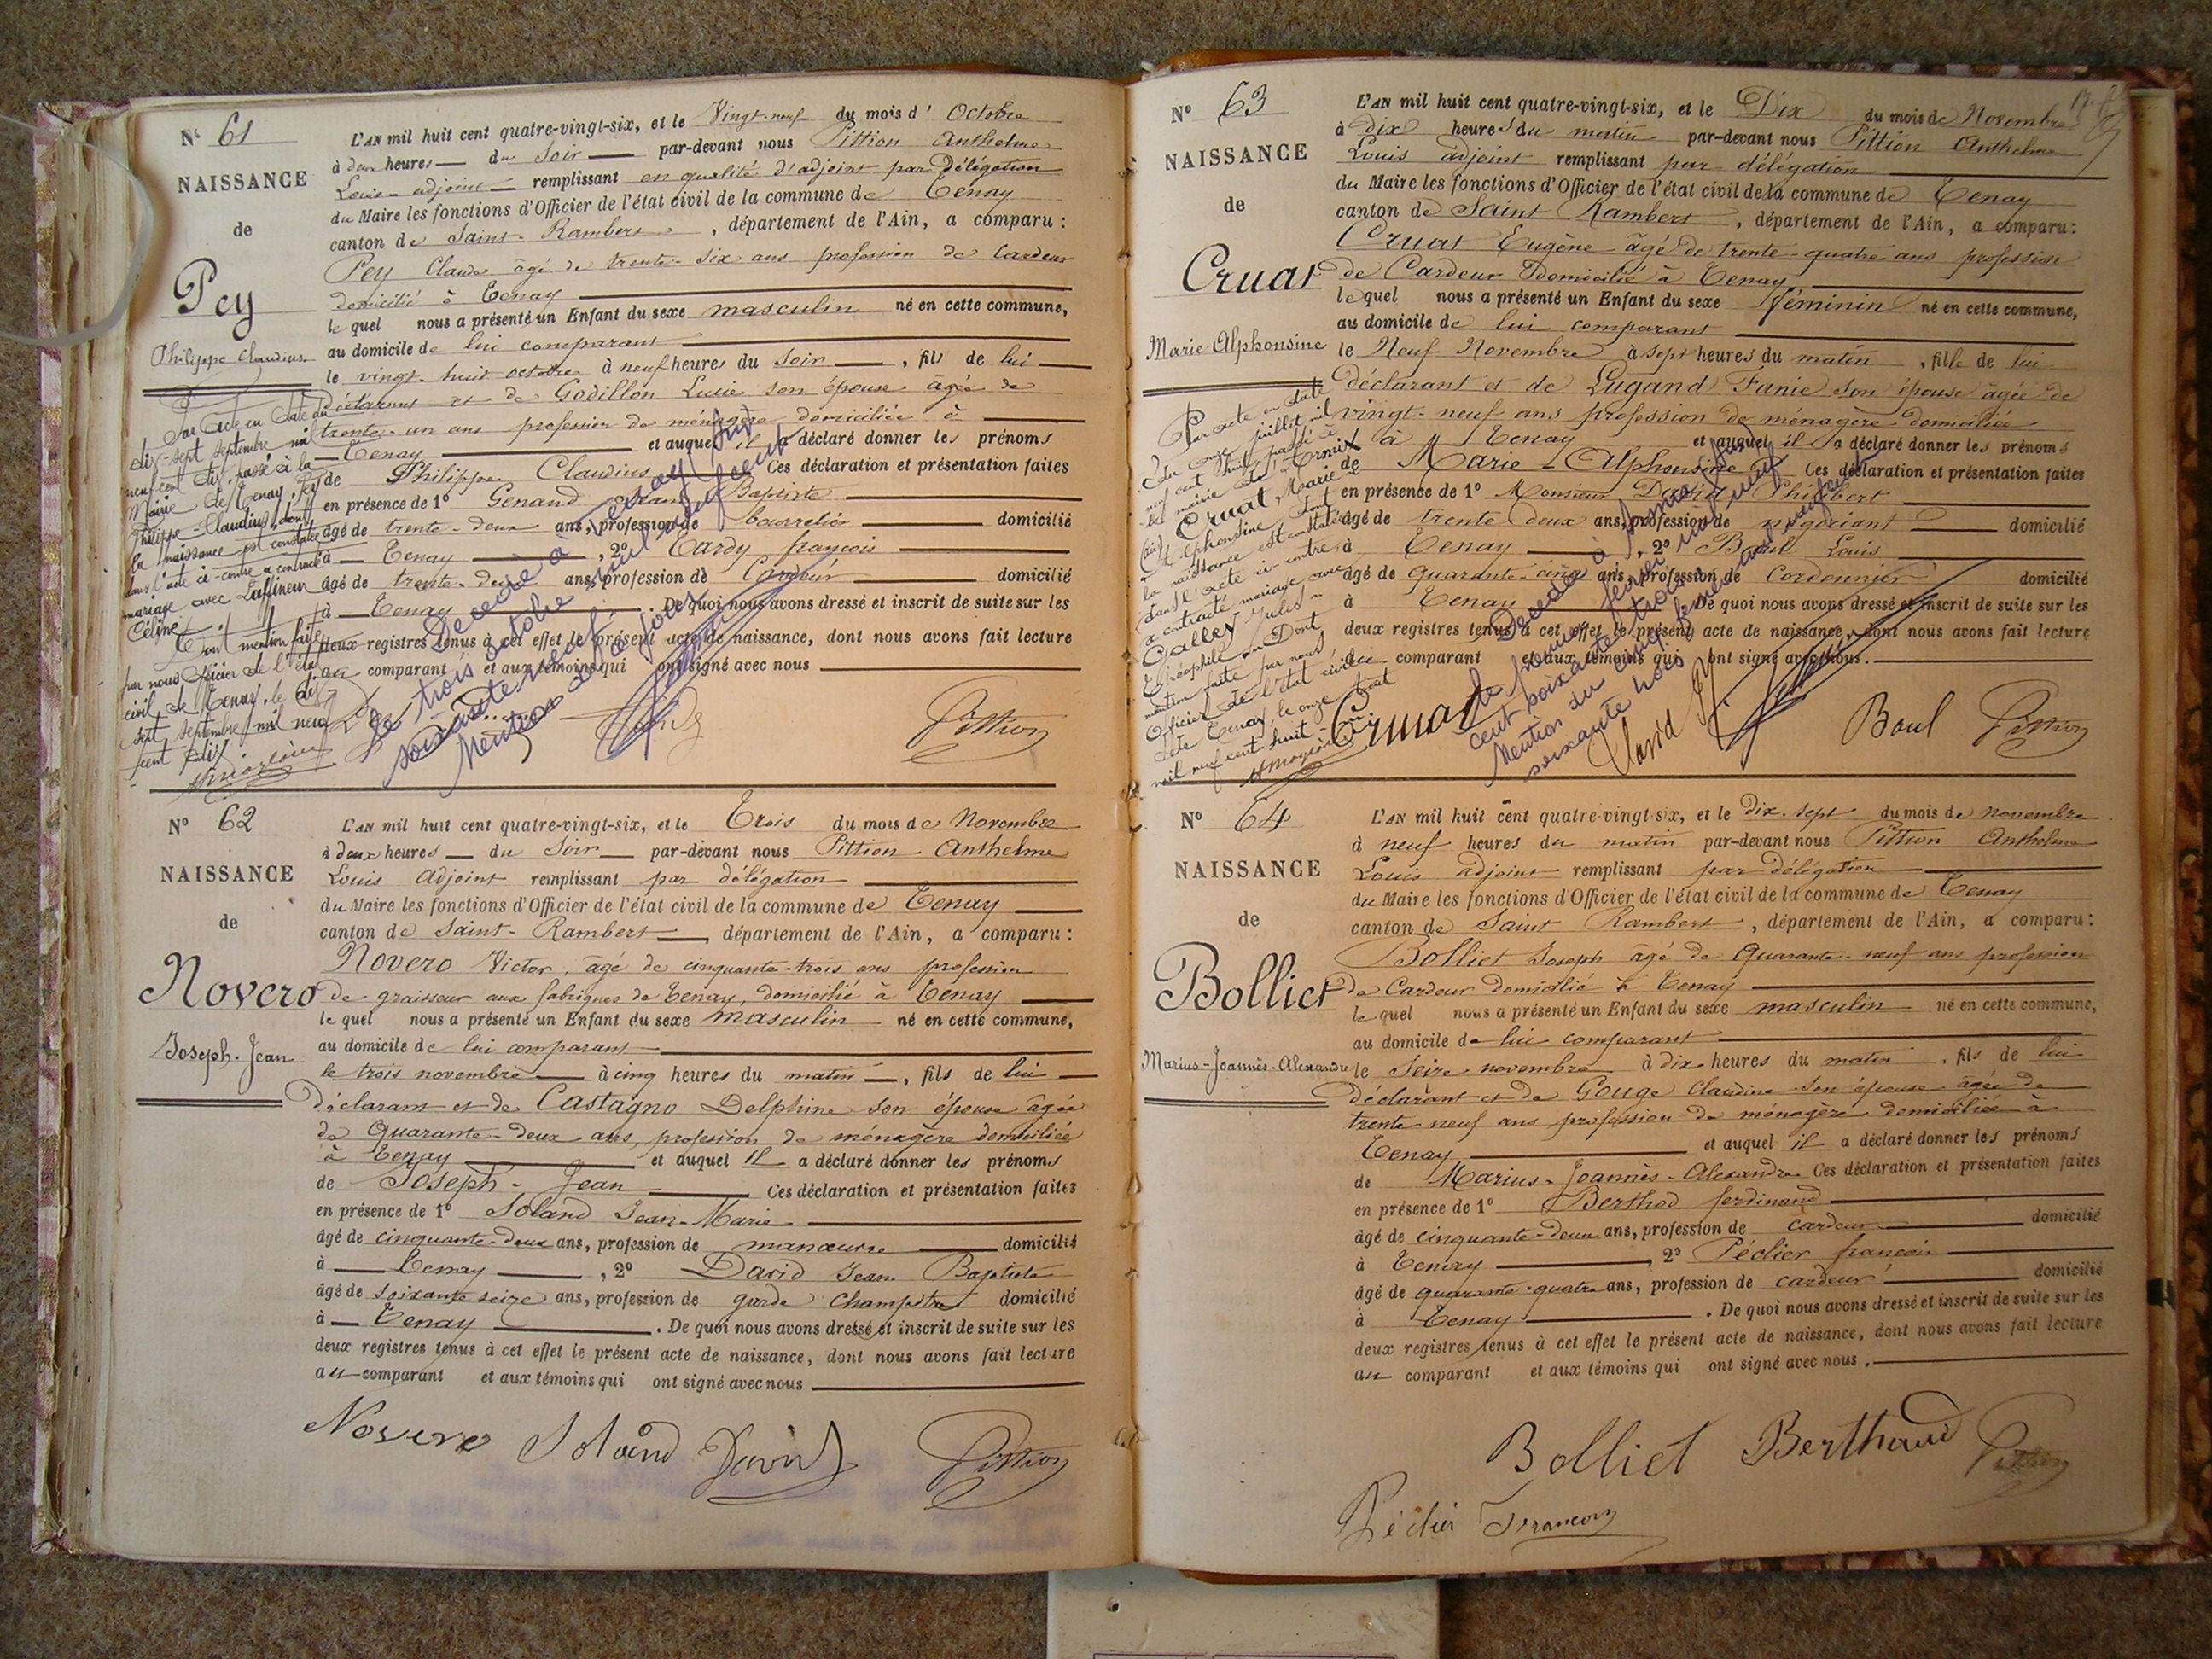 N° 61
NAISSANCE
de
Pey
Philippe Claudius
L'AN mil huit cent quatre-vingt-six, et le Vingt-neuf du mois d' Octobre
à deux heures du Soir par-devant nous Pittion Anthelme
Louis adjoint remplissant en qualité d'adjoint par délégation
du Maire les fonctions d'Officier de l'état civil de la commune de Tenay
canton de Saint-Rambert, département de l'Ain, a comparu :
Pey Claude âgé de trente-six ans profession de Cardeur
domicilié à Tenay
lequel nous a présenté un Enfant du sexe masculin né en cette commune,
au domicile de lui comparant
le vingt-huit octobre à neuf heures du Soir, fils de lui
déclarant et de Godillon Lucie son épouse âgée de
trente-un ans profession de ménagère domiciliée à
Tenay et auquel il a déclaré donner les prénoms
de Philippe Claudius Ces déclaration et présentation faites
en présence de 1° Genand Baptiste
âgé de trente-deux ans, profession de bourrelier domicilié
à Tenay, 2° Tardy françois
âgé de trente-deux ans, profession de Cardeur domicilié
à Tenay. De quoi nous avons dressé et inscrit de suite sur les
deux registres tenus à cet effet le présent acte de naissance, dont nous avons fait lecture
au comparant et aux témoins qui ont signé avec nous
Par acte en date du
dix-sept septembre mil
neuf cent dix, passé à la
Mairie de Tenay, Pey
Philippe-Claudius, dont
la naissance est constatée
dans l'acte ci-contre a contracté
mariage avec Laffineur
Céline
Dont mention faite
par nous officier de l'état
civil de Tenay, le dix
sept septembre mil neuf
cent dix
Décédé à Tenay
le trois octobre mil neuf cent
soixante neuf
Mention
Pittion
N° 62
NAISSANCE
de
Novero
Joseph-Jean
L'AN mil huit cent quatre-vingt-six, et le Trois du mois de Novembre
à deux heures du Soir par-devant nous Pittion Anthelme
Louis Adjoint remplissant par délégation
du Maire les fonctions d'Officier de l'état civil de la commune de Tenay
canton de Saint-Rambert, département de l'Ain, a comparu :
Novero Victor, âgé de cinquante-trois ans profession
de graisseur aux fabriques de Tenay, domicilié à Tenay
lequel nous a présenté un Enfant du sexe masculin né en cette commune,
au domicile de lui comparant
le trois novembre à cinq heures du matin, fils de lui
déclarant et de Castagno Delphine son épouse âgée
de Quarante-deux ans, profession de ménagère domiciliée
à Tenay et auquel il a déclaré donner les prénoms
de Joseph-Jean Ces déclaration et présentation faites
en présence de 1° Soland Jean-Marie
âgé de cinquante-deux ans, profession de manœuvre domicilié
à Tenay, 2° David Jean Baptiste
âgé de soixante seize ans, profession de garde champêtre domicilié
à Tenay. De quoi nous avons dressé et inscrit de suite sur les
deux registres tenus à cet effet le présent acte de naissance, dont nous avons fait lecture
au comparant et aux témoins qui ont signé avec nous
Novero Soland David Pittion
N° 63
NAISSANCE
de
Cruat
Marie Alphonsine
L'AN mil huit cent quatre-vingt-six, et le Dix du mois de Novembre
à dix heures du matin par-devant nous Pittion Anthelme
Louis adjoint remplissant par délégation
du Maire les fonctions d'Officier de l'état civil de la commune de Tenay
canton de Saint Rambert, département de l'Ain, a comparu :
Cruat Eugène âgé de trente-quatre ans profession
de Cardeur domicilié à Tenay
lequel nous a présenté un Enfant du sexe féminin né en cette commune,
au domicile de lui comparant
le Neuf Novembre à sept heures du matin, fille de lui
déclarant et de Lugand Fanie son épouse âgée de
vingt-neuf ans profession de ménagère domiciliée
à Tenay et auquel il a déclaré donner les prénoms
de Marie-Alphonsine Ces déclaration et présentation faites
en présence de 1° Monsieur David Philibert
âgé de trente deux ans, profession de négociant domicilié
à Tenay, 2° Baul Louis
âgé de quarante-cinq ans, profession de Cordonnier domicilié
à Tenay De quoi nous avons dressé et inscrit de suite sur les
deux registres tenus à cet effet le présent acte de naissance, dont nous avons fait lecture
au comparant et aux témoins qui ont signé avec nous.
Par acte en date
du onze juillet mil
neuf cent huit passé à
la mairie de
Cruat, Marie
Alphonsine, dont
la naissance est constatée
dans l'acte ci-contre
a contracté mariage avec
Calley Jules
Théophile. Dont
mention faite par nous
Officier de l'état civil
de Tenay, le onze
mil neuf cent huit
Décédée à
le premier février mil neuf
cent soixante trois
Mention du cinq février mil neuf cent
soixante trois
Cruat David Baul Pittion
N° 64
NAISSANCE
de
Bolliet
Marius-Joannès-Alexandre
L'AN mil huit cent quatre-vingt-six, et le dix-sept du mois de novembre
à neuf heures du matin par-devant nous Pittion Anthelme
Louis adjoint remplissant par délégation
du Maire les fonctions d'Officier de l'état civil de la commune de Tenay
canton de Saint Rambert, département de l'Ain, a comparu :
Bolliet Joseph âgé de Quarante-neuf ans profession
de Cardeur domicilié à Tenay
lequel nous a présenté un Enfant du sexe masculin né en cette commune,
au domicile de lui comparant
le Seize novembre à dix heures du matin, fils de lui
déclarant et de Gouge Claudine son épouse âgée de
trente neuf ans profession de ménagère domiciliée à
Tenay et auquel il a déclaré donner les prénoms
de Marius-Joannès-Alexandre Ces déclaration et présentation faites
en présence de 1° Berthod ferdinand
âgé de cinquante-deux ans, profession de cardeur domicilié
à Tenay, 2° Péclier françois
âgé de quarante-quatre ans, profession de cardeur domicilié
à Tenay. De quoi nous avons dressé et inscrit de suite sur les
deux registres tenus à cet effet le présent acte de naissance, dont nous avons fait lecture
au comparant et aux témoins qui ont signé avec nous.
Bolliet Berthaud Pittion
Péclier François